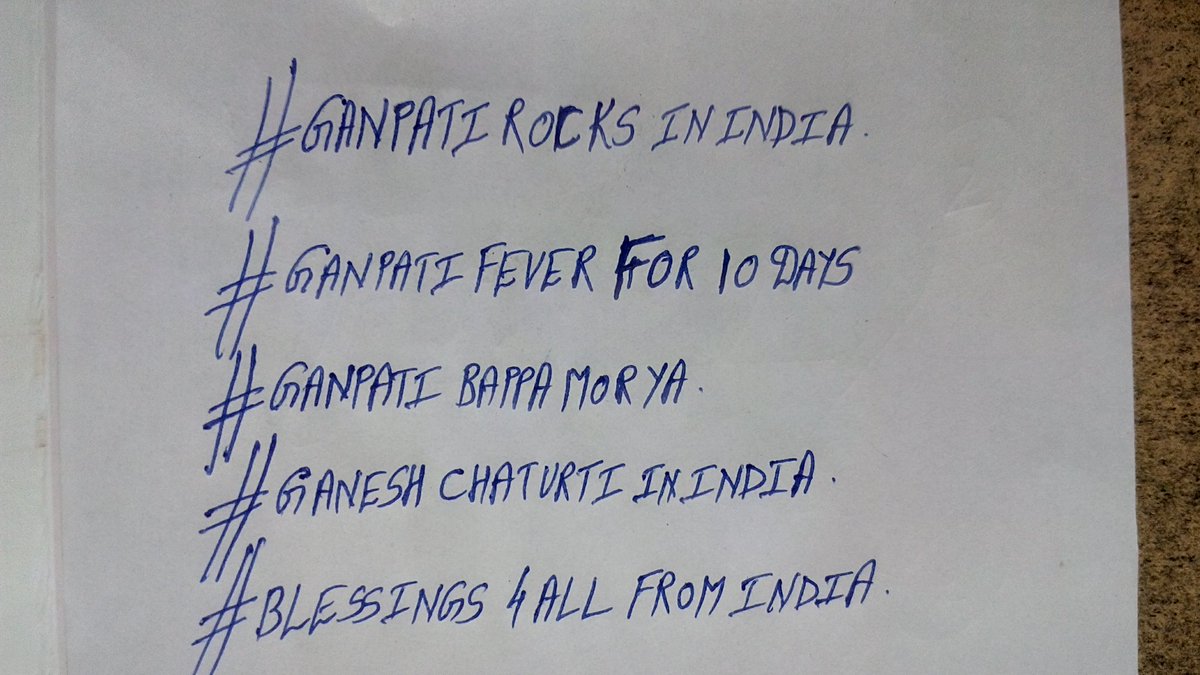 #GANPATI ROCKS IN INDIA.
#GANPATI FEVER FOR 10 DAYS
#GANPATI BAPPA MORYA.
#GANESH CHATURTI IN INDIA.
#BLESSINGS 4 ALL FROM INDIA.